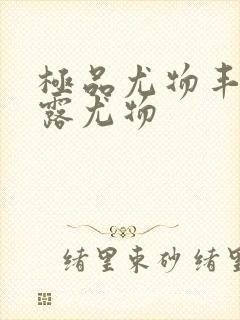 極品尤物丰
露尤物
绪里束砂绪里